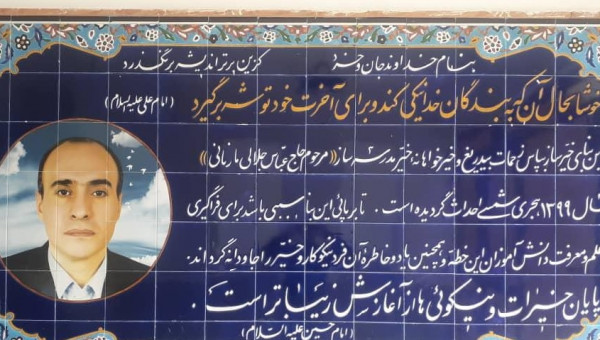 بنام خداوند جان و خرد کزین برتر اندیشه برنگذرد
خوشا بحال آن که به بندگان خدا نیکی کند و برای آخرت خود توشه برگیرد (امام علی علیه السلام)
بنای خیرساز بپاس زحمات بیدریغ و خیرخواهانه خیر مدرسه ساز «مرحوم حاج عباس جلالی مارنانی»
سال ۱۳۹۹ هجری شمسی احداث گردیده است. تا برپایی این بنا سببی باشد برای فراگیری
علم و معرفت دانش آموزان این خطه و همچنین یاد و خاطره آن فرد نیکوکار و خیر را جاودانه گرداند.
پایان خیرات و نیکوئی ها از آغازش زیباتر است.
(امام حسین علیه السلام)